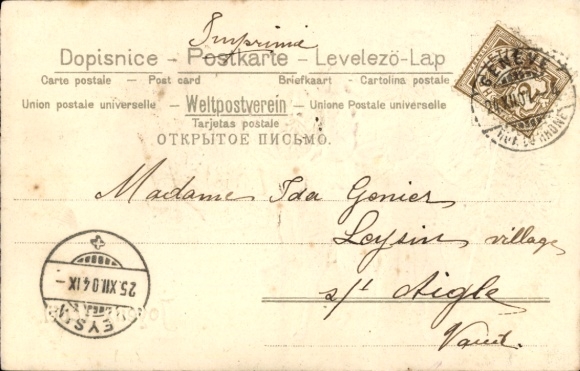 Imprimé
Dopisnice – Postkarte – Levelező-Lap
Carte postale – Post card Briefkaart – Cartolina postale
Union postale universelle – Weltpostverein – Unione Postale universale
Tarjetas postale
ОТКРЫТОЕ ПИСЬМО.
GENÈVE
RUE DU RHÔNE
Madame Ida Genier
Leysin village
s/t Aigle
Vaud.
25.XII.04 IX –
LEYSIN